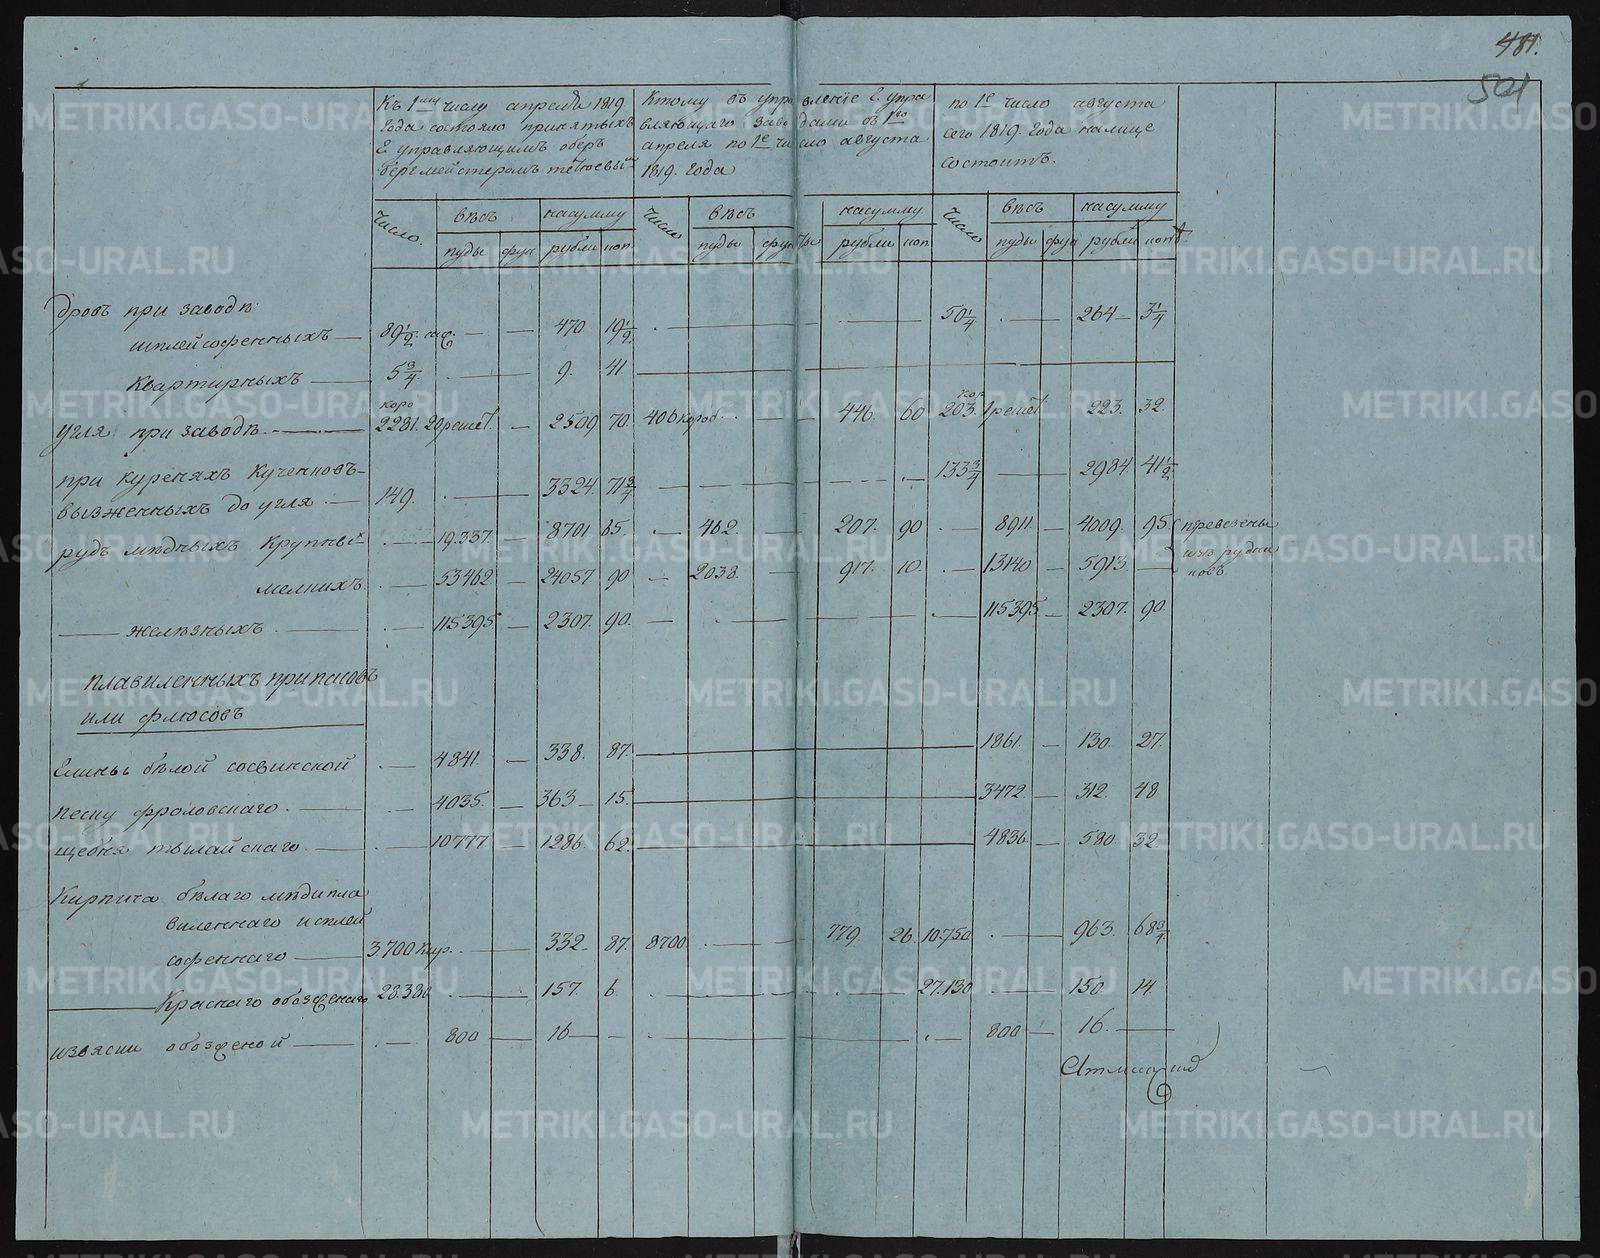 481.
501
Къ 1му числу апреля 1819
года состояло принятыхъ
Е управляющимъ оберъ
бергмейстеромъ
Ктому въ управление Е упра
вляющаго заводами съ 1го
апреля по 1е число августа
1819. года
по 1е число августа
сего 1819. года налице
состоитъ.
Число. вѣсъ насумму Число вѣсъ насумму Число вѣсъ насумму
пуды фун рубли коп пуды фунты рубли коп пуды фун рубли коп
дровъ при заводѣ
шплейсофенныхъ 89½ саж. 470 19½ 50¼ 264 3¼
Квартирныхъ 5¾. 9. 41
угля при заводѣ. коро 2281. 20 решет. 2509 70. 406 короб. 446. 60 кор 203. 1 решет 223. 32.
при куреняхъ Кученковъ
вызженныхъ до угля 149. 3324. 71¾ 133¾ 2984 41½
рудъ мѣдныхъ Крупны 19337. 8701 65. 462. 207. 90 8911. 4009. 95 превезены
изъ рудни
ковъ
мелкихъ. 53462 24057. 90 2038. 917. 10. 13140 5913.
железныхъ 115395. 2307. 90. 115395. 2307. 90.
плавиленныхъ припасовъ
или флюсовъ
Глины бѣлой сосвинской 4841. 338. 87. 1861. 130. 27.
песку фроловскаго. 4035. 363 15. 3472. 312. 48
щебня тылайскаго 10777. 1286. 62. 4836. 580. 32.
Кирпича бѣлаго мѣдипла
виленнаго и сплей
софеннаго 3.700 Кир. 332. 87. 8700. 779. 26. 10.750 963. 68¾
Краснаго обозженаго 28.380 157. 6. 27.130 150. 14.
извясти обозженой 800 16 800 16.